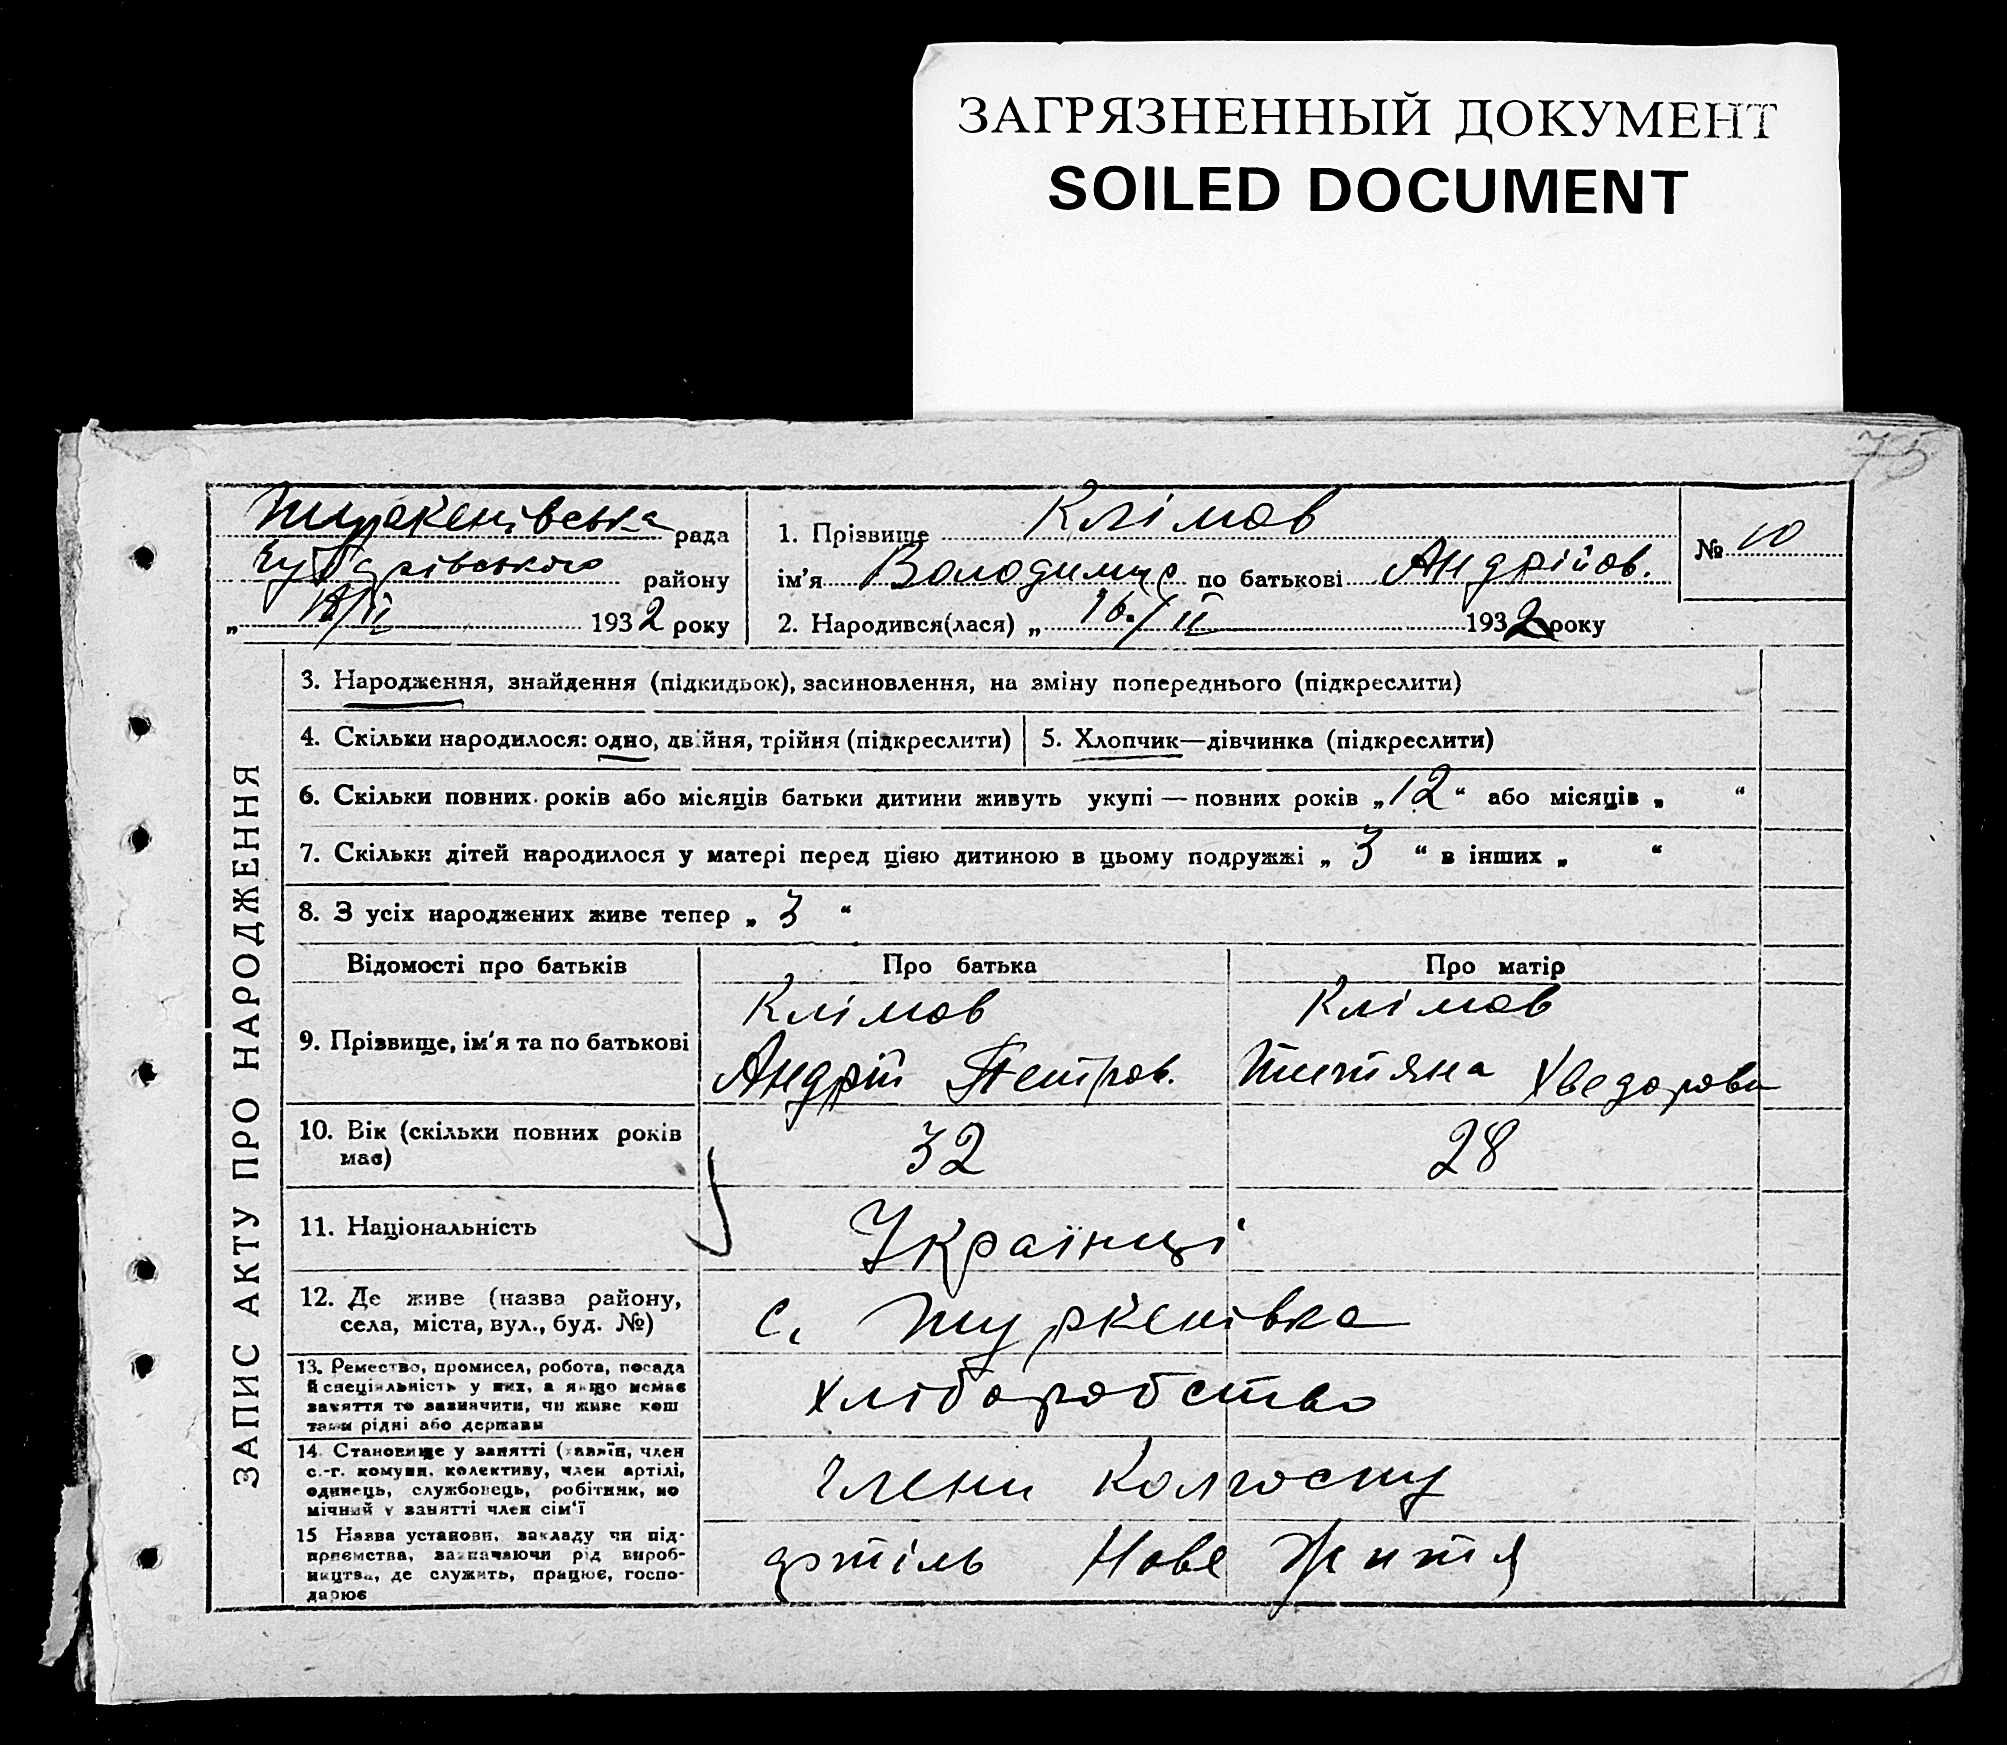 ЗАГРЯЗНЕННЫЙ ДОКУМЕНТ
SOILED DOCUMENT
75
Туркенівська рада
Чубарівського району
„ 18/II 1932 року
1. Прізвище Клімов
ім'я Володимир по батькові Андрійов.
2. Народився(лася) „ 16./II 1932 року
№ 10
ЗАПИС АКТУ ПРО НАРОДЖЕННЯ
3. Народження, знайдення (підкидьок), засиновлення, на зміну попереднього (підкреслити)
4. Скільки народилося: одно, двійня, трійня (підкреслити)
5. Хлопчик—дівчинка (підкреслити)
6. Скільки повних років або місяців батьки дитини живуть укупі — повних років „12“ або місяців „ “
7. Скільки дітей народилося у матері перед цією дитиною в цьому подружжі „ 3 “ в інших „ “
8. З усіх народжених живе тепер „ 3 “
Відомості про батьків Про батька Про матір
9. Прізвище, ім'я та по батькові
Клімов
Андрій Петров.
Клімов
Титяна Хведорова
10. Вік (скільки повних років
має)
32
28
11. Національність
Українці
12. Де живе (назва району,
села, міста, вул., буд. №)
с. Туркенівка
13. Ремество, промисел, робота, посада
й спеціяльність у них, а якщо немає
заняття то зазначити, чи живе кош
тами рідні або держави
хліборобство
14. Становище у занятті (хазяїн, член
с.-г. комуни, колективу, член артілі,
одинець, службовець, робітник, по
мічний у занятті член сім'ї
члени колгоспу
15 Назва установи, закладу чи під-
приємства, зазначаючи рід вироб-
ництва, де служить, працює, госпо-
дарює
артіль Нове Життя